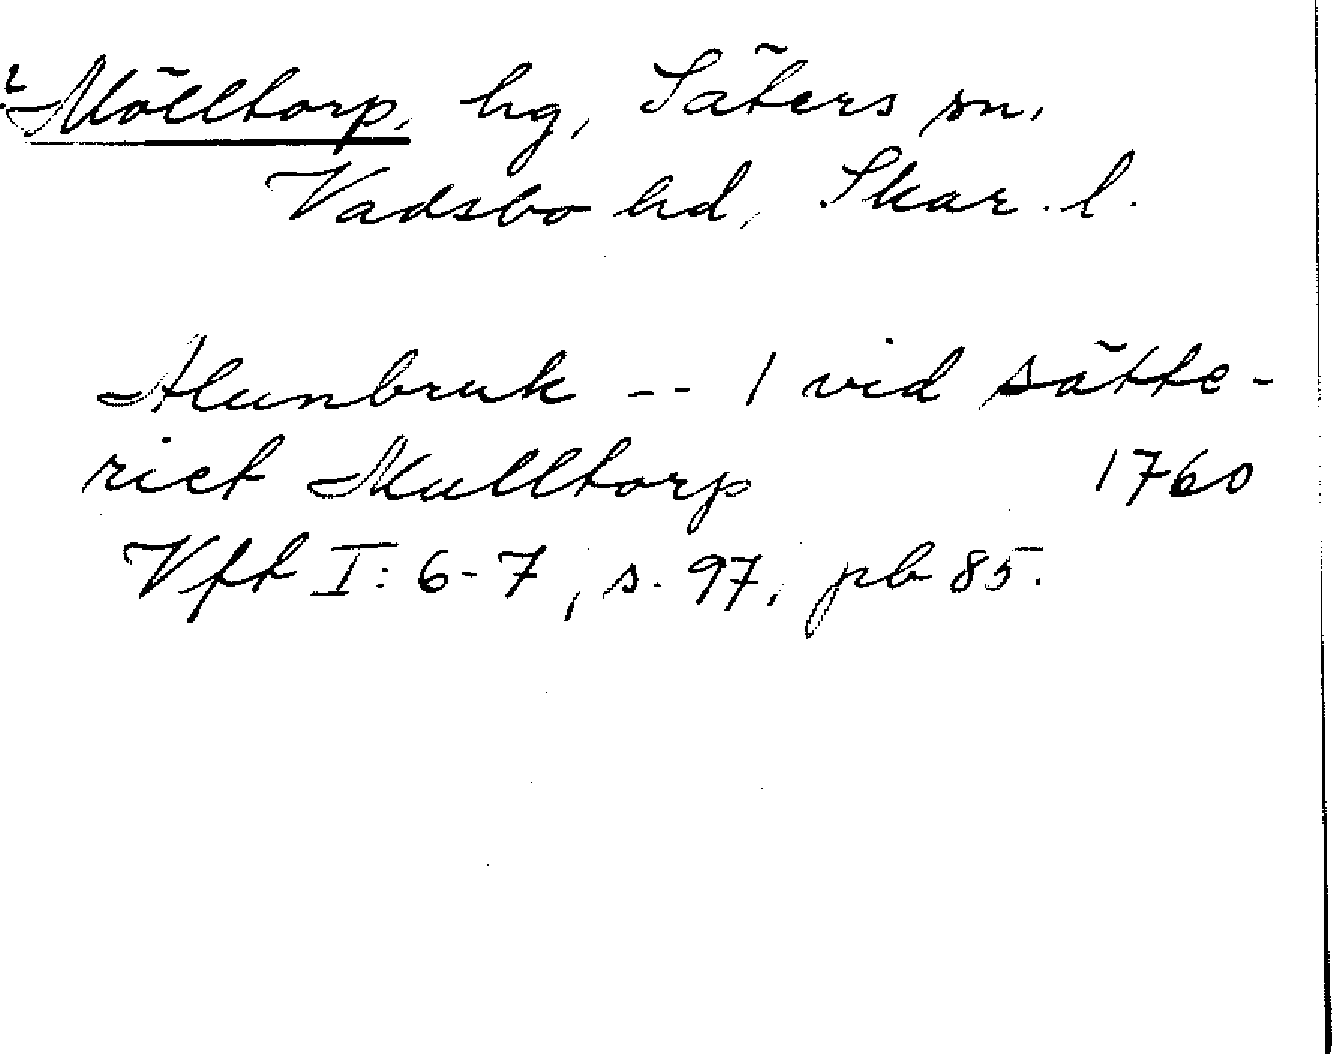 ? Mölltorp, hg, Säters sn,
Vadsbo hd, Skar. l.
Alunbruk -- 1 vid sätte-
riet Mulltorp 1760
Vft I: 6-7, s. 97, pb 85.